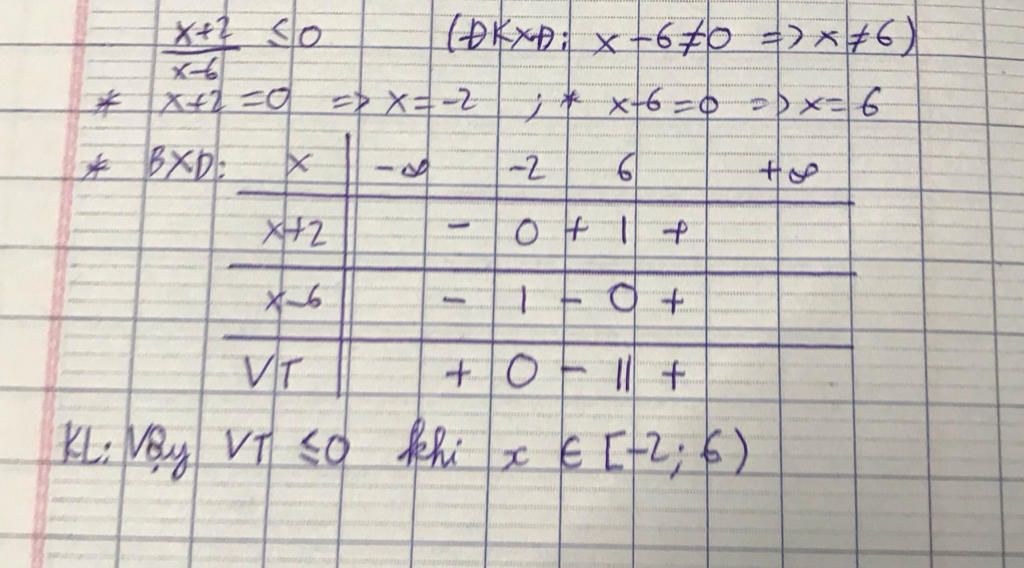 x+2/x-6 ≤0 (ĐKXĐ: x-6≠0 => x≠6)
* x+2=0 => x=-2 ; * x-6=0 => x=6
* BXD: x | -∞ -2 6 +∞
x+2 | - 0 + | +
x-6 | - | - 0 +
VT | + 0 - || +
KL: Vậy VT ≤0 khi x ∈ [-2; 6)